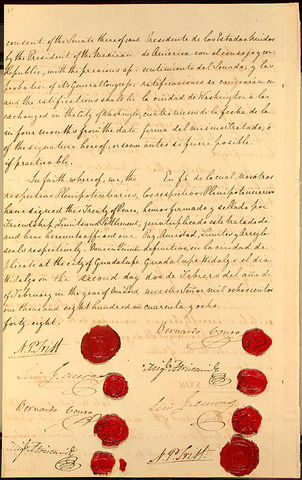 consent of the Senate thereof; and
by the President of the Mexican
Republic, with the previous ap-
probation of its General Congress:
and the ratifications shall be
exchanged in the City of Washington,
in four months from the date
of the signature hereof, or sooner
if practicable.
In faith whereof, we, the
respective Plenipotentiaries,
have signed this Treaty of Peace,
Friendship, Limits and Settlement,
and have hereunto affixed our
seals respectively. Done in Quintu-
plicate at the City of Guadalupe
Hidalgo on the second day
of February in the year of Our Lord
one thousand eight hundred and
forty eight.
N. P. Trist
Luis G. Cuevas
Bernardo Couto
Migl. Atristain
Presidente de los Estados Unidos
de America con el consejo y con-
sentimiento del Senado; y las
ratificaciones se cangearán en
la ciudad de Washington a los
cuatro meses de la fecha de la
firma del mismo tratado, ó
antes si fuere posible.
En fé de lo cual, nosotros
los respectivos Plenipotenciarios
hemos firmado y sellado por
quintuplicado este tratado de
Paz, Amistad, Limites y Arreglo
definitivo, en la ciudad de
Guadalupe Hidalgo el dia
dos de Febrero del año de
nuestro Señor mil ochocientos
cuarenta y ocho.
Bernardo Couto
Migl. Atristain
Luis G. Cuevas
N. P. Trist